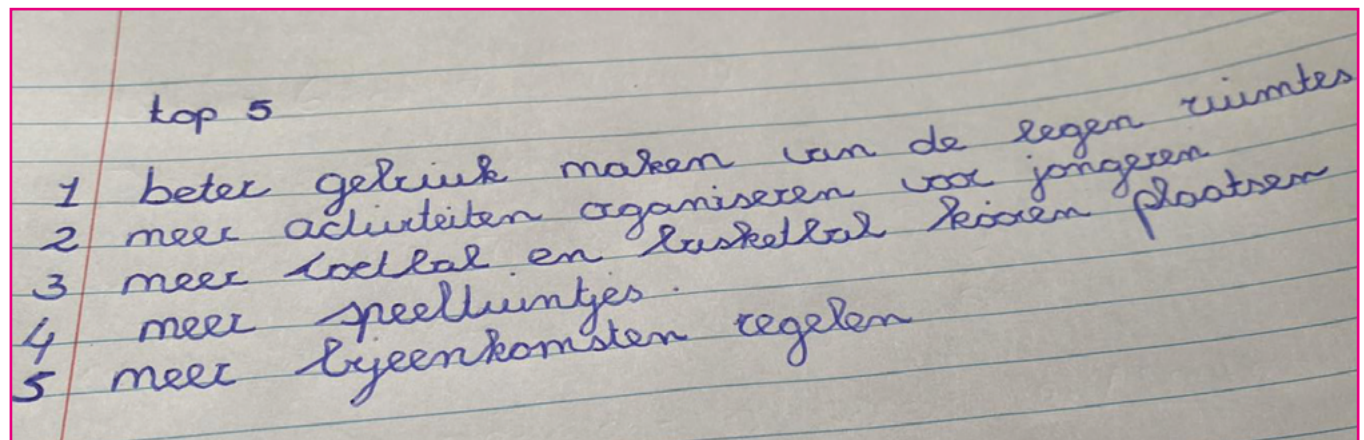 top 5
1 beter gebruik maken van de legen ruimtes
2 meer activiteiten organiseren voor jongeren
3 meer voetbal en basketbal kooien plaatsen
4 meer speeltuintjes.
5 meer bijeenkomsten regelen